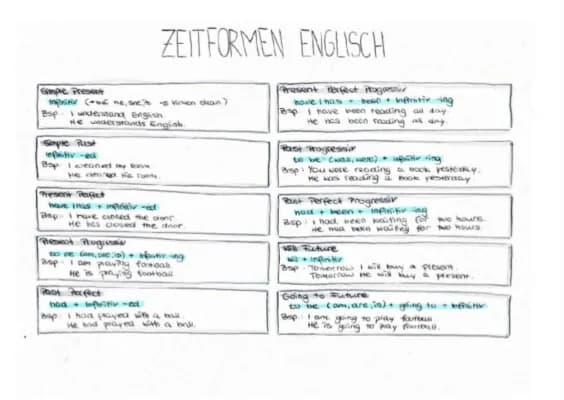 ZEITFORMEN ENGLISCH
Simple Present
Infinitiv (he, she, it -s
Bsp.: I understand English.
He understands English.
Simple Past
Infinitiv -ed
Bsp.: I cleaned my room.
He cleaned his room.
Present Perfect
have / has + Infinitiv -ed
Bsp.: I have closed the door.
He has closed the door.
Present Progressiv
to be (am, are, is) + Infinitiv -ing
Bsp.: I am playing football.
He is playing football.
Past Perfect
had + Infinitiv -ed
Bsp.: I had played with a ball.
He had played with a ball.
Present Perfect Progressiv
have / has + been + Infinitiv -ing
Bsp.: I have been reading all day.
He has been reading all day.
Past Progressiv
to be (was, were) + Infinitiv -ing
Bsp.: You were reading a book yesterday.
He was reading a book yesterday
Past Perfect Progressiv
had + been + Infinitiv -ing
Bsp.: I had been waiting for two hours.
He had been waiting for two hours
Will Future
will + Infinitiv
Bsp.: Tomorrow I will buy a present.
Tomorrow He will buy a present.
Going to Future
to be (am, are, is) + going to + Infinitiv
Bsp.: I am going to play football
He is going to play football.